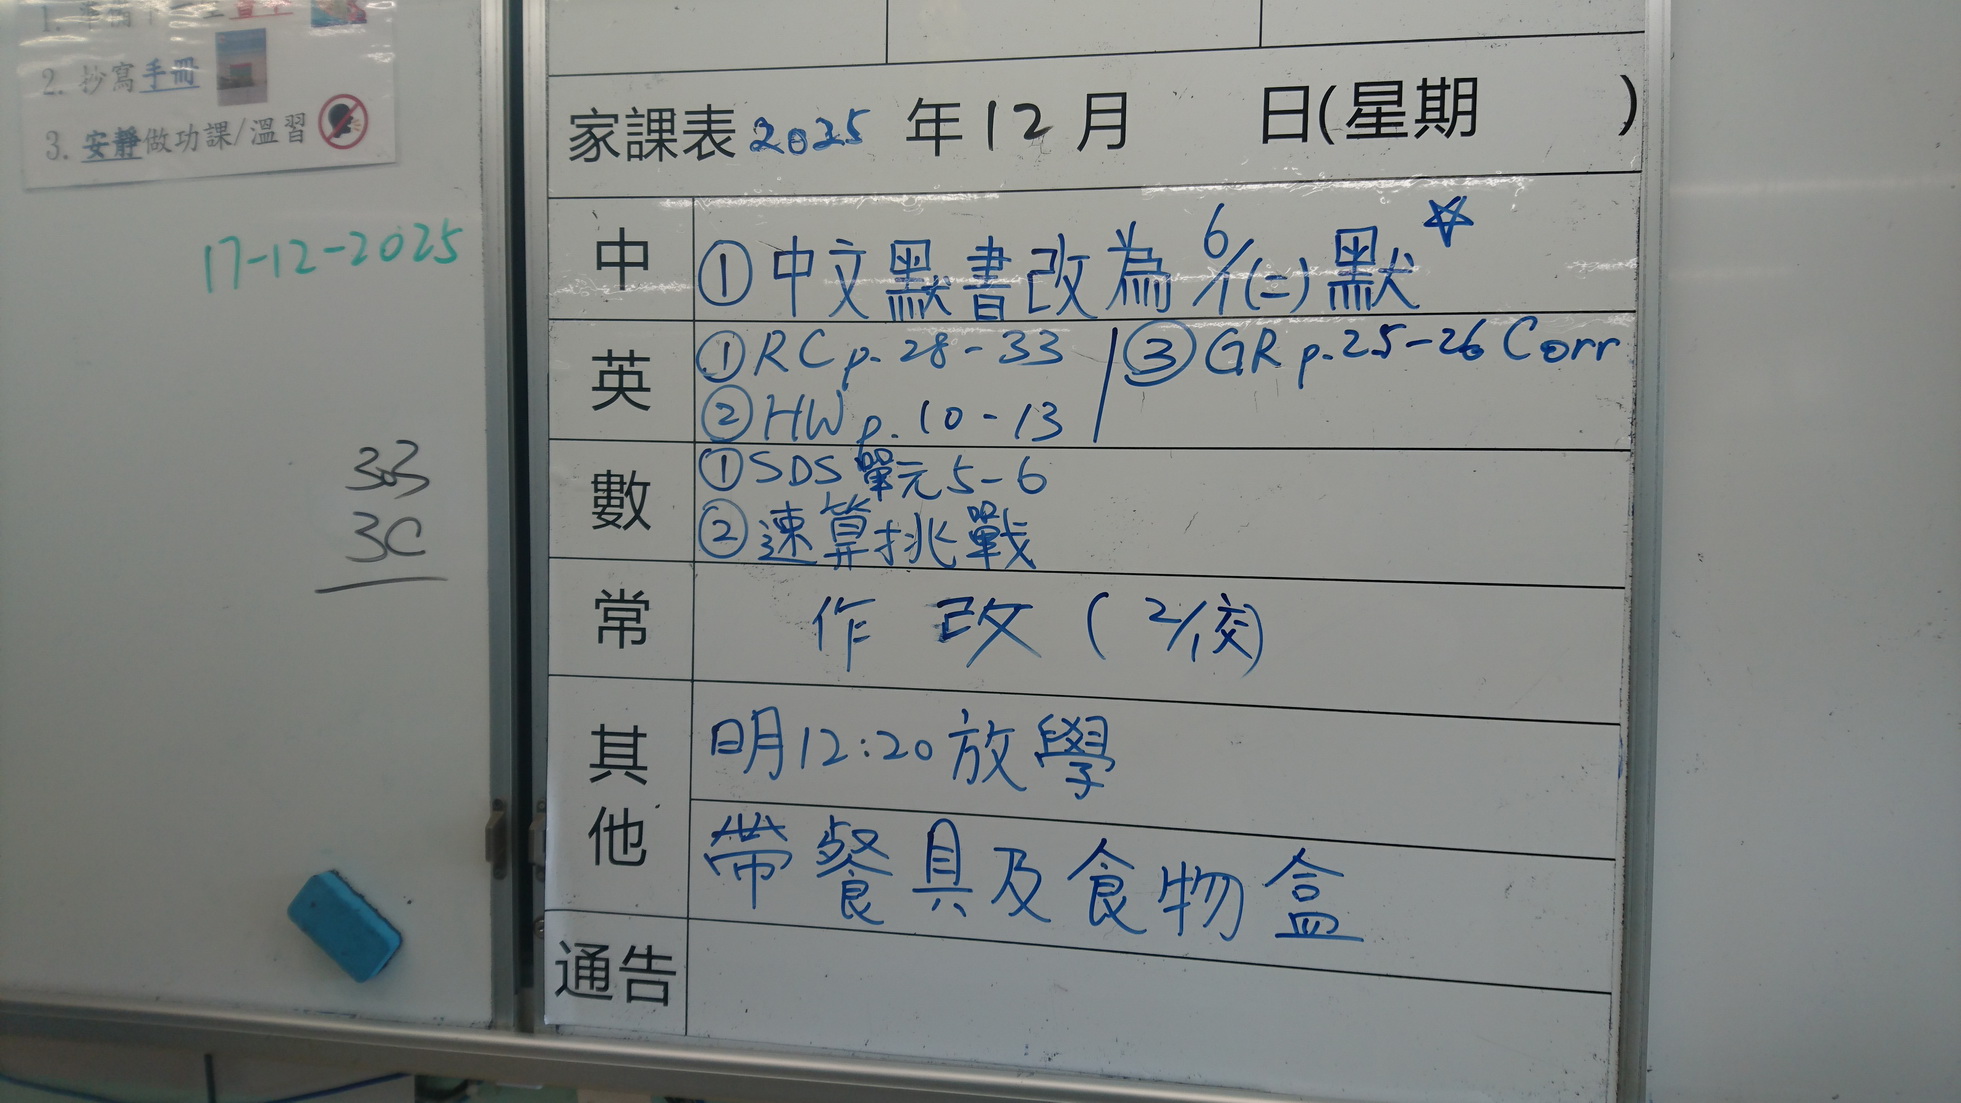 2. 抄寫手冊
3. 安靜做功課/溫習
17-12-2025
33
3C
家課表 2025 年 12 月 日(星期 )
中 ① 中文默書改為 6/1(二)默☆
英 ① RC p. 28-33 / ③ GR p. 25-26 Corr
② HW p. 10-13
數 ① SDS 單元 5-6
② 速算挑戰
常 作 改 ( 2/1交)
其他 明 12:20 放學
帶餐具及食物盒
通告